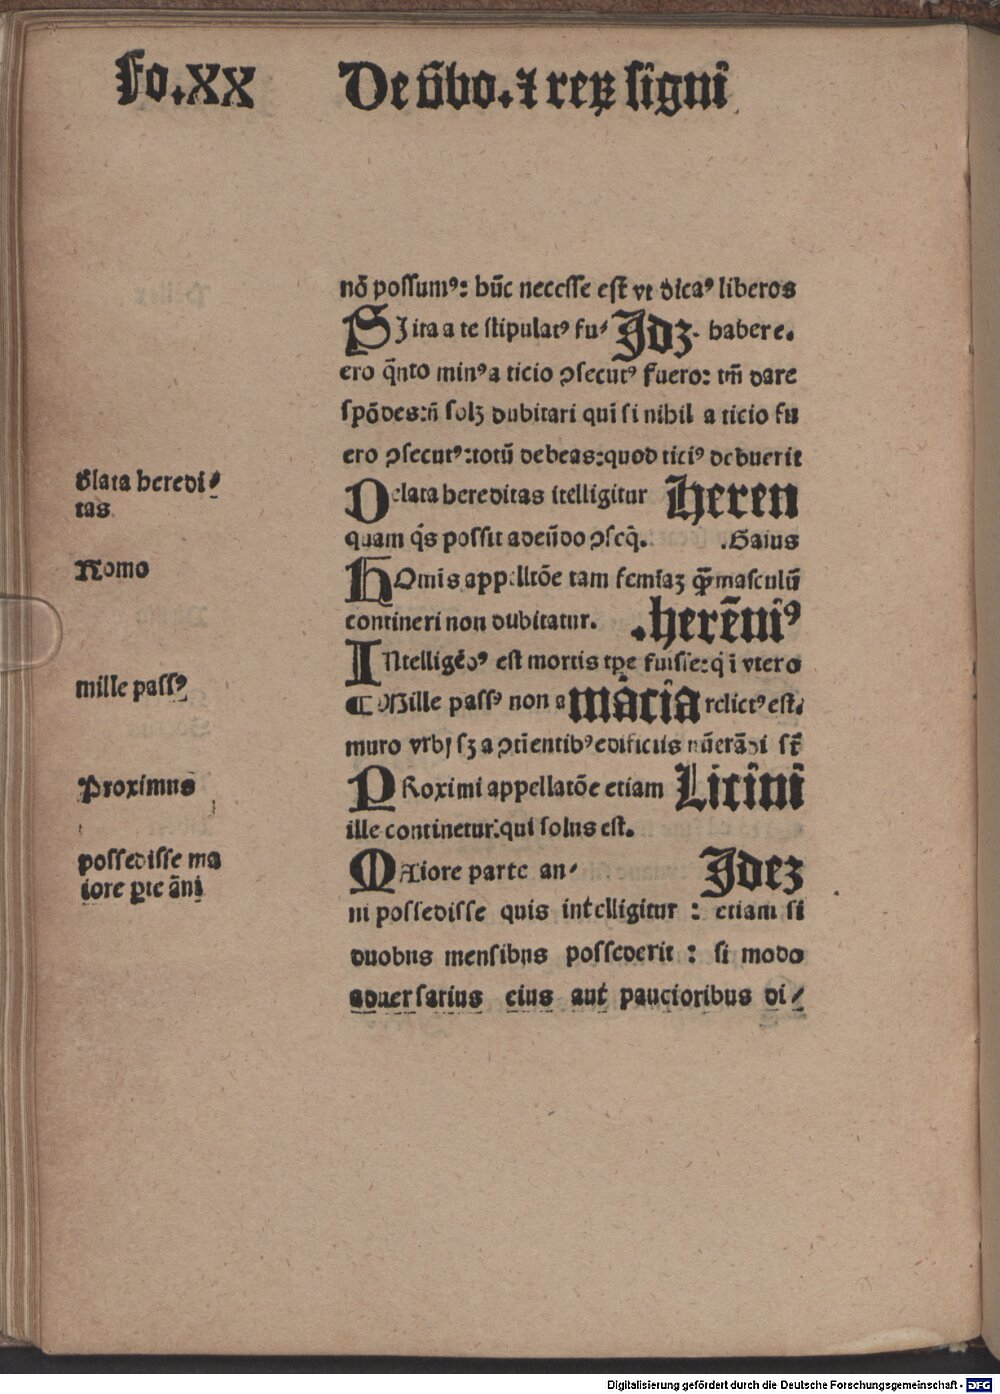 Fo.XX De v̄bo. ⁊ reꝝ signi
nō possumꝰ: hūc necesse est vt dicaꝰ liberos
SI ita a te stipulatꝰ fu⸗ Idꝫ. habere.
ero q̄nto minꝰ a ticio ꝯsecutꝰ fuero: tm̄ dare
spōdes: n̄ solꝫ dubitari quī si nihil a ticio fu
ero ꝯsecutꝰ: totū debeas: quod ticiꝰ debuerit
Dlata heredi⸗
tas
DElata hereditas itelligitur Heren
quam q̄s possit adeūdo ꝯseq̄. .Gaius
Homo
HOmis appelltōe tam femīaꝫ qꝫ masculū
contineri non dubitatur. .herēniꝰ
INtelligēdꝰ est mortis tꝑe fuisse: q̄ i vtero
mille passꝰ
¶ Mille passꝰ non a mācia relictꝰ est.
muro vrbꝭ sꝫ a ꝯtinentibꝰ edificiis nūerādi st̄
Proximus
PRoximi appellatōe etiam Licini
ille continetur: qui solus est.
possedisse ma
iore ꝑte āni
MAiore parte an⸗ Idez
ni possedisse quis intelligitur : etiam si
duobus mensibus possederit : si modo
aduersarius eius aut paucioribus di⸗
Digitalisierung gefördert durch die Deutsche Forschungsgemeinschaft - DFG